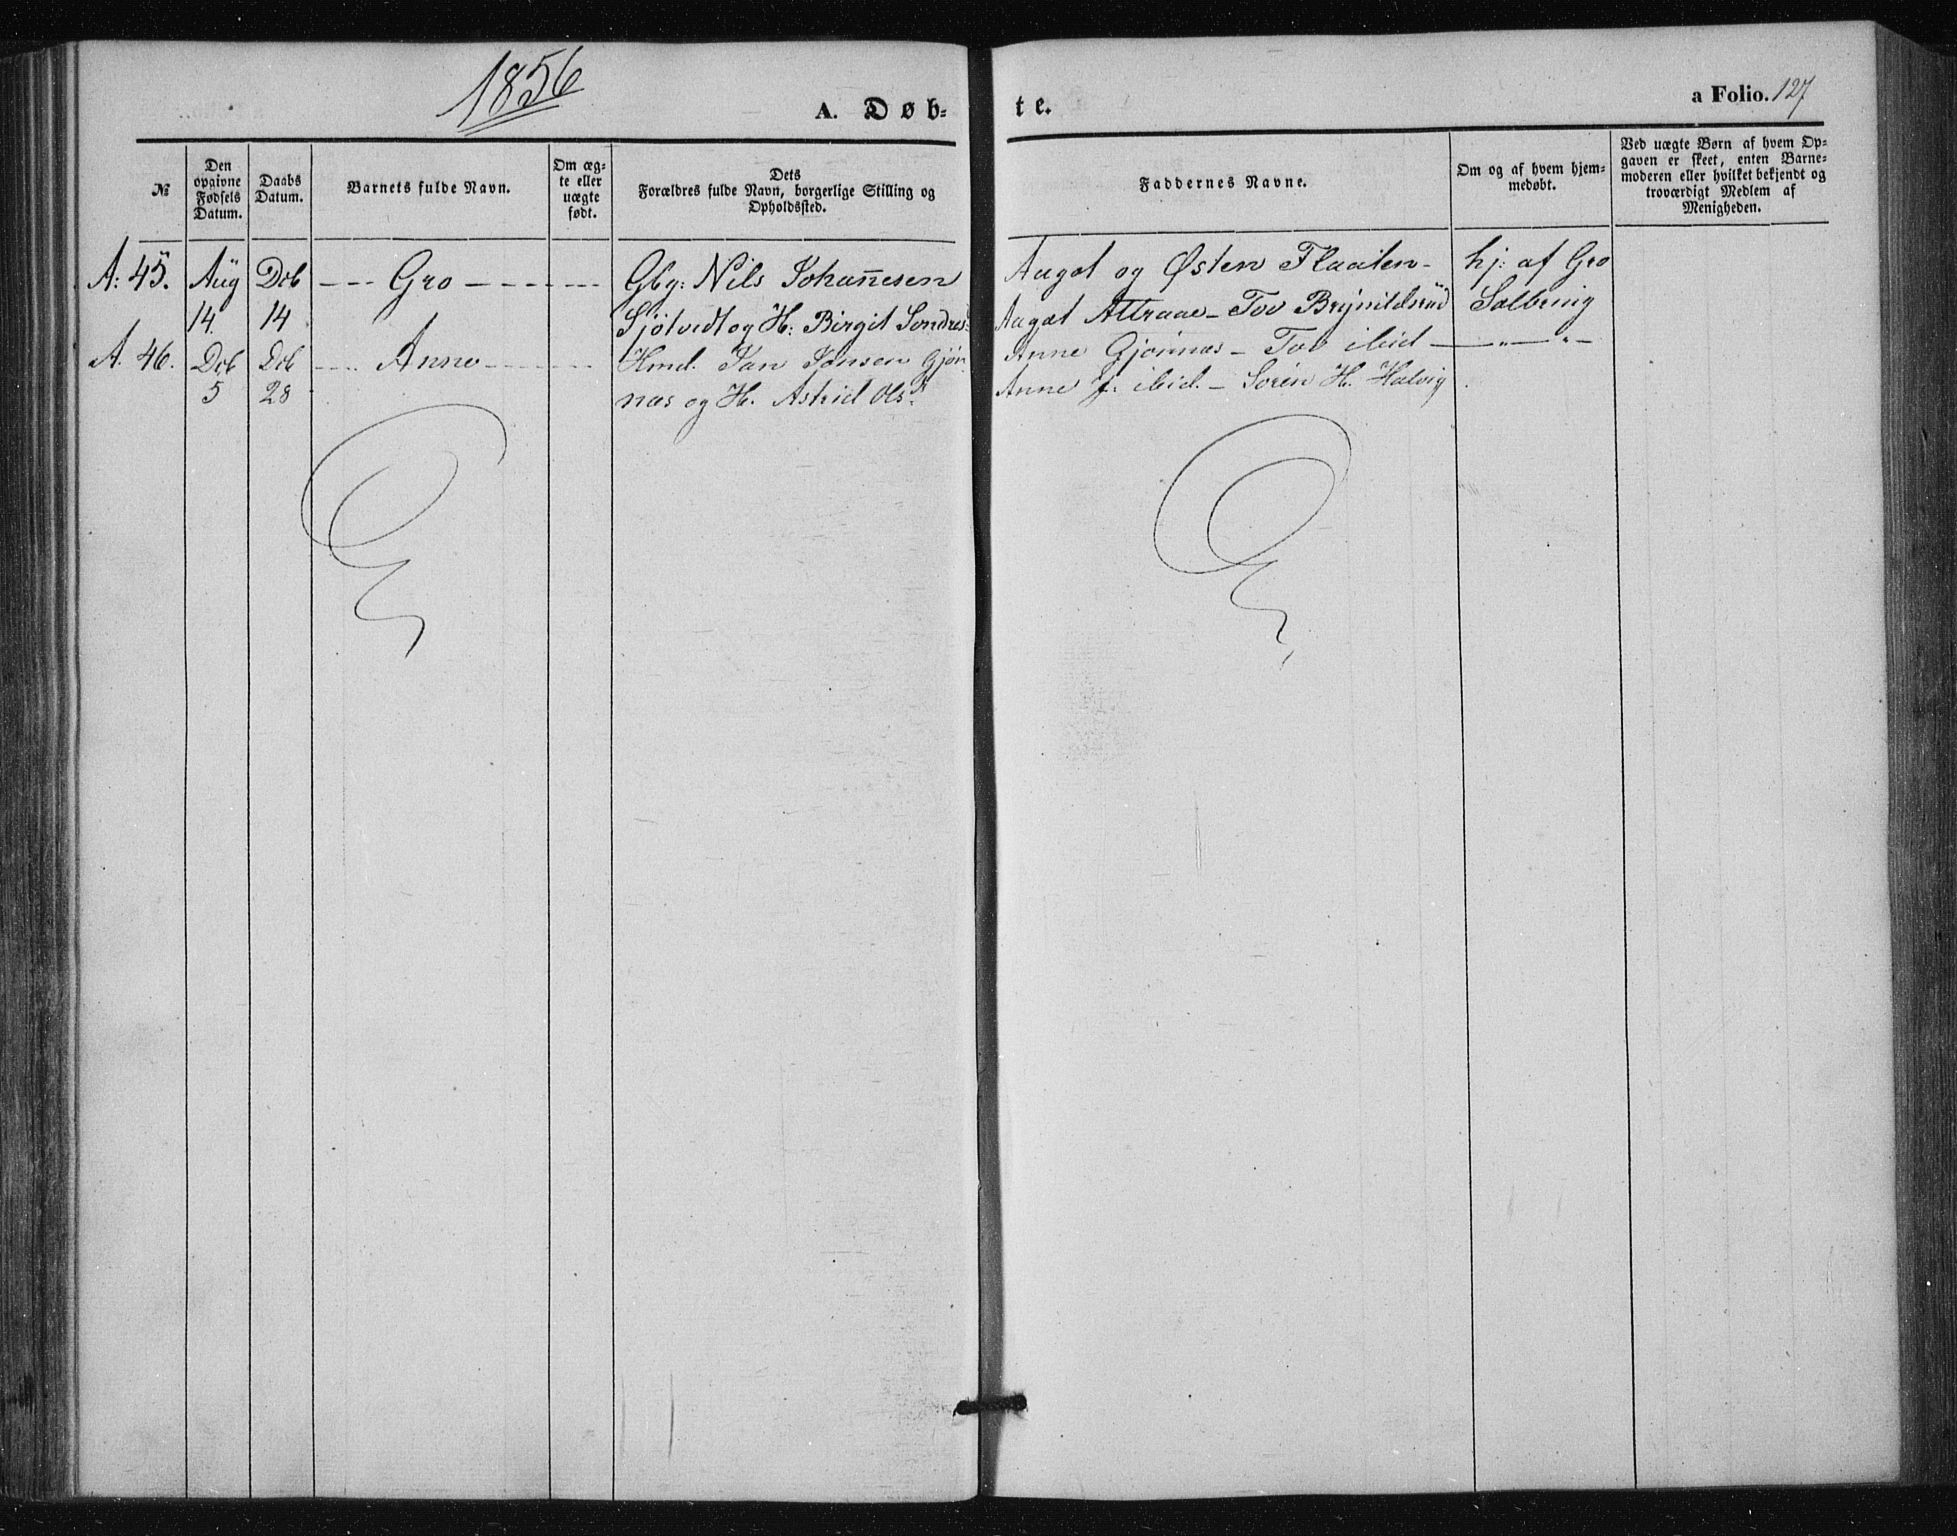 1856
A. Døb-
te.
a Folio. 127
№
Den opgivne Fødsels Datum.
Daabs Datum.
Barnets fulde Navn.
Om æg-te eller uægte født.
Dets Forældres fulde Navn, borgerlige Stilling og Opholdssted.
Faddernes Navne.
Om og af hvem hjem-medøbt.
Ved uægte Børn af hvem Op-gaven er skeet, enten Barne-moderen eller hvilket bekjendt og troværdigt Medlem af Menigheden.
A: 45. Aug Dcb --- Gro ------ Gbg: Nils Johannesen Aagot og Østen Flaaten - hj: af Gro
14 14 Sjötvedt og H: Birgit Sondres: Aagot Attraae - Tov Brynildsrud
A. 46. Dcb Dcb ---- Anne ------ Hmd. Jan Jonsen Gjön- Anne Gjönnæs - Tov ibid - — „ — „ -
5 28 næs og H. Astrid Ols: Anne J: ibid. - Sören H.